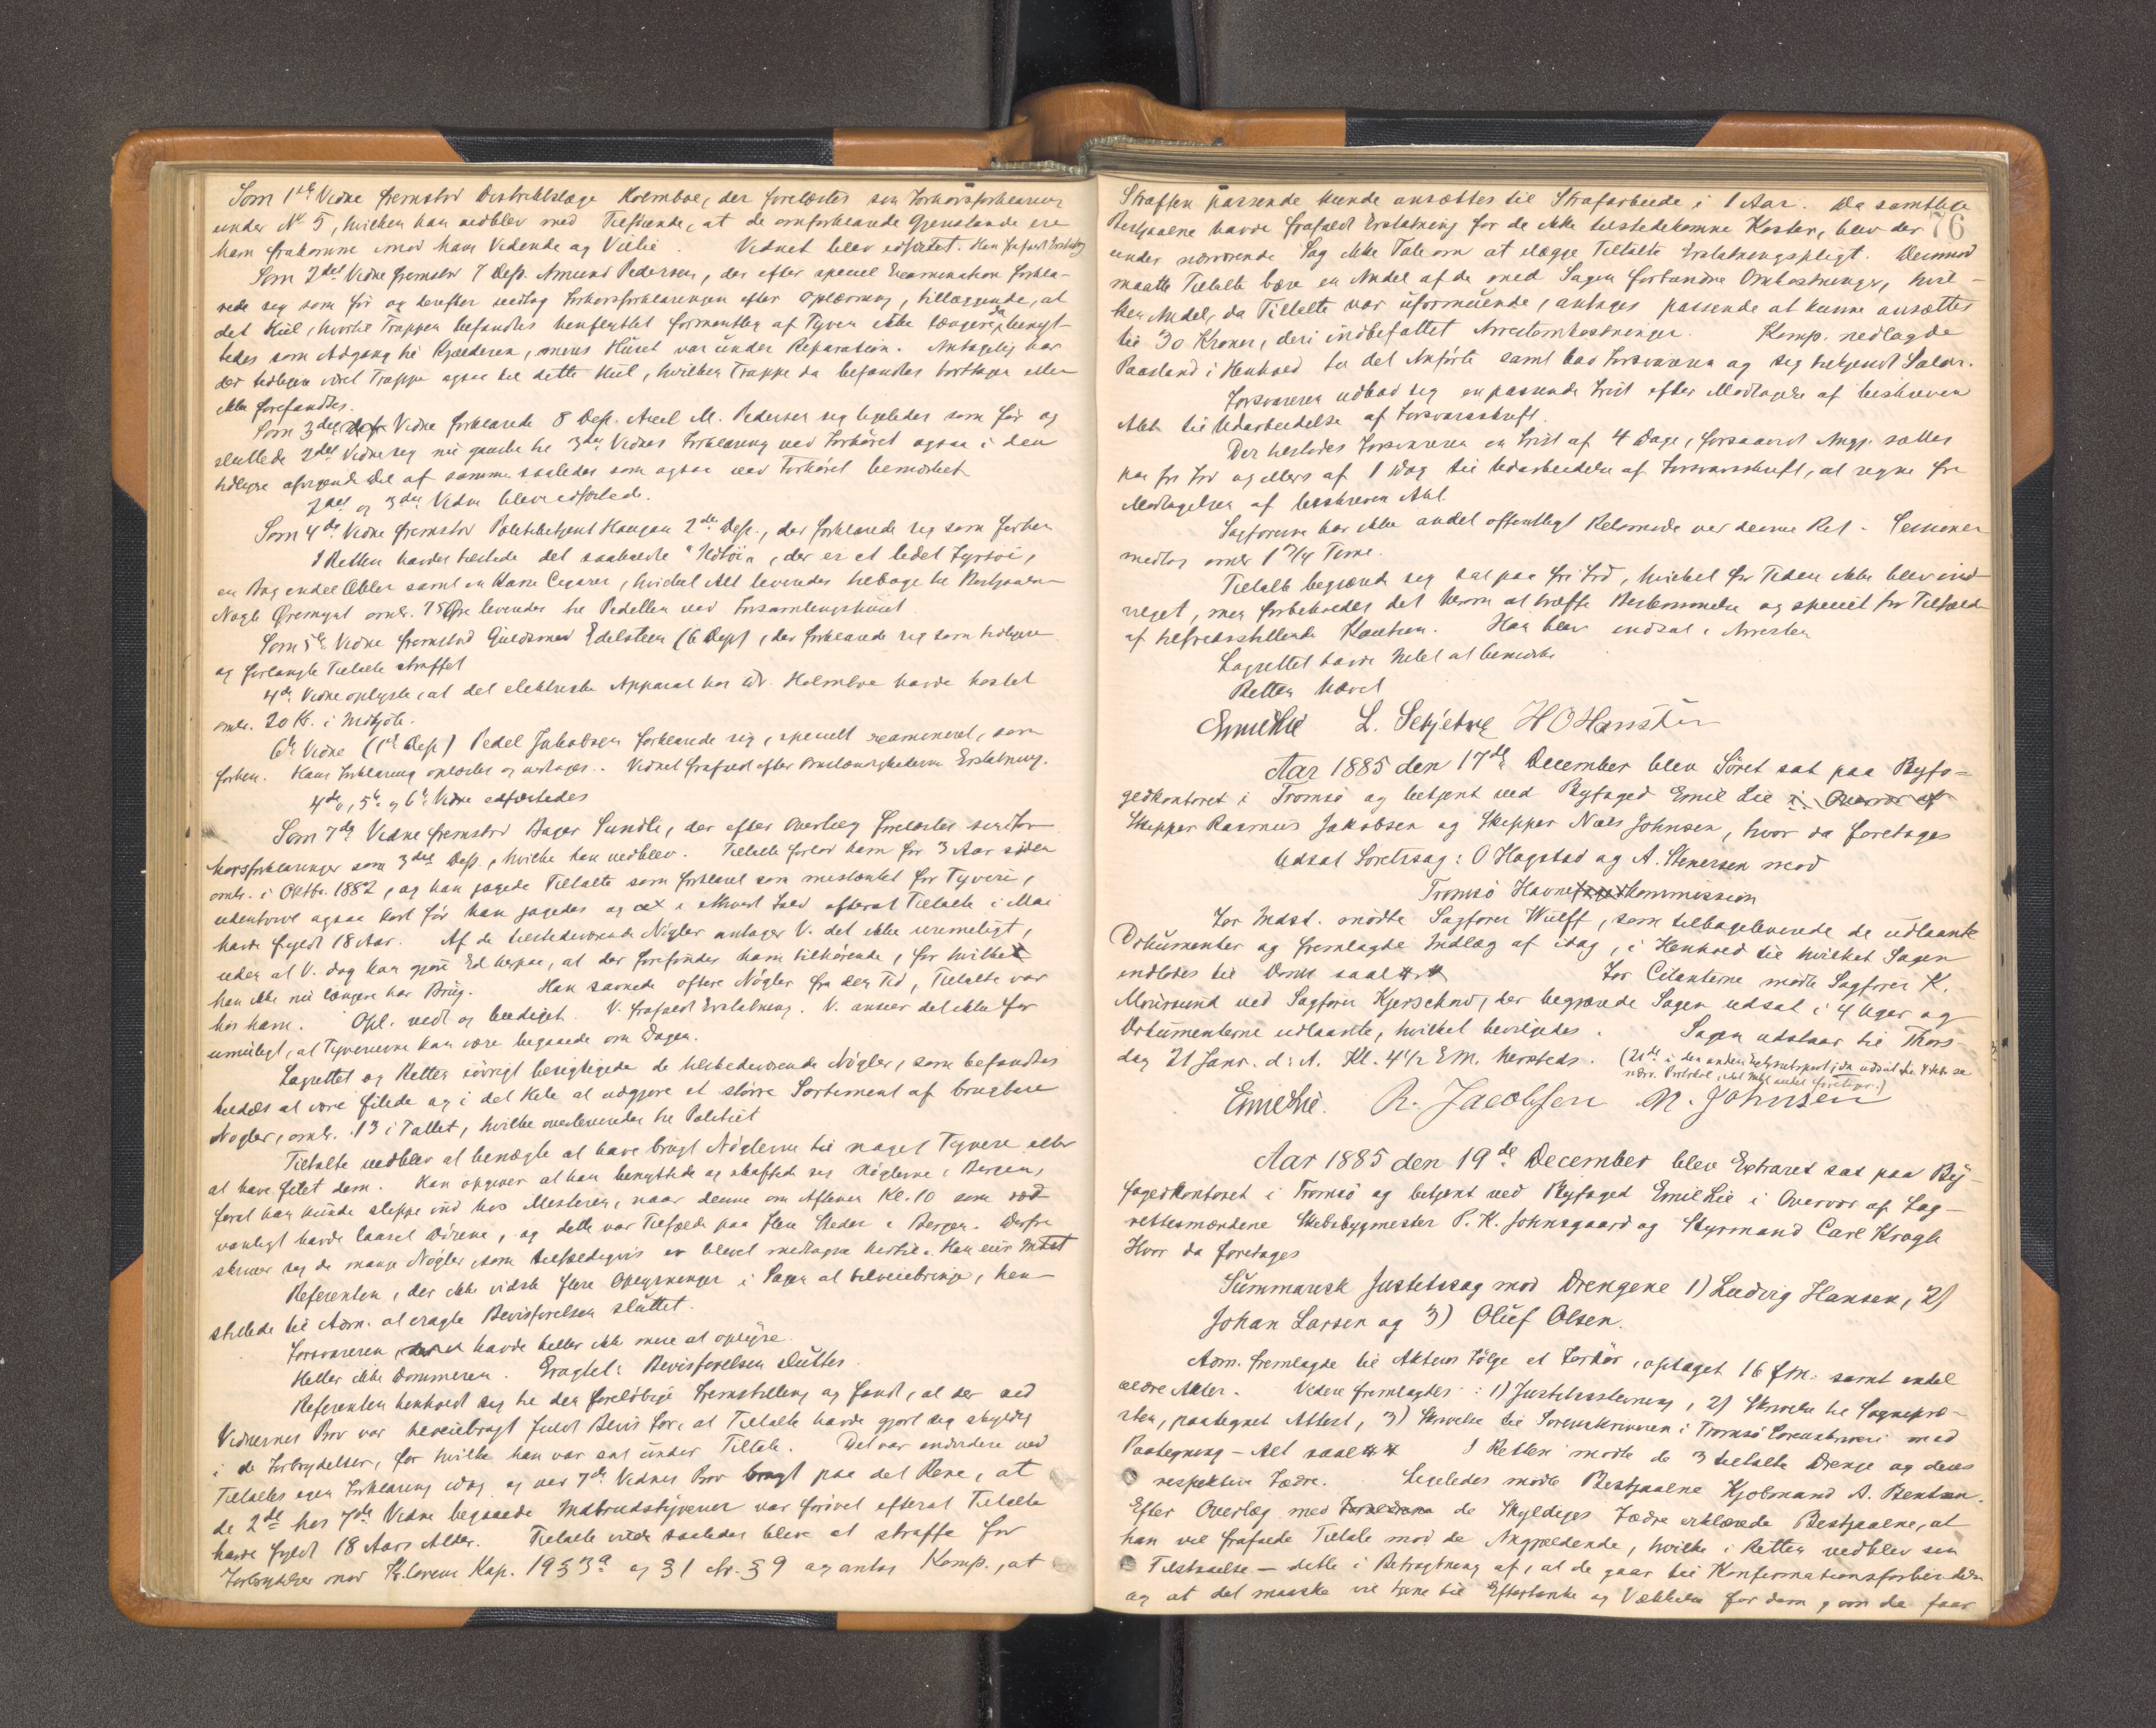 Som 1ste Vidne fremstod Distriktslæge Holmboe, der forelæstes sin Forhørsforklaring
under No 5, hvilken han vedblev med Tilføiende, at de omforklarede Gjenstande ere
ham frakomne imod hans Vidende og Villie. Vidnet blev edfæstet. Han frafaldt Erstatning
Som 2det Vidne fremstod 7 Dep. Amund Pedersen, der efter speciel Examination forkla-
rede sig som før og derefter vedtog Forhørsforklaringen efter Oplæsning, tillæggende, at
det Hul, hvortil Trappen befandtes henflyttet formentlig af Tyven ikke længere da benyt-
tedes som Adgang til Kjælderen, mens Huset var under Reparation. Antagelig har
der tidligere været Trappe ogsaa til dette Hul, hvilken Trappe da befandtes borttagen eller
ikke forefandtes.
Som 3die Vidne forklarede 8 Dep. Axel M. Pedersen sig ligeledes som før og
sluttede 2det Vidne sig nu ganske til 3die Vidnes Forklaring ved Forhøret ogsaa i den
tidligere afvigende Del af samme saaledes som ogsaa ved Forhøret bemærket
2det og 3die Vidne bleve edfæstede.
Som 4de Vidne fremstod Politibetjent Haugan 2den Dep., der forklarede sig som forhen
I Retten havdes tilstede det saakaldte "Ildtøi", der er et lidet Fyrtøi,
en Bog endel Æbler samt en Kasse Cigarer, hvilket Alt leveredes tilbage til Bestjaalne
Nogle Øremynt omtr. 75 Øre leveredes til Pedellen ved Forsamlingshuset
Som 5te Vidne fremstod Guldsmed Edelsteen (6 Dep) der forklarede sig som tidligere
og forlangte Tiltalte straffet
4de Vidne oplyste, at det elektriske Apparat hos Dr. Holmboe havde kostet
omtr. 20 Kr. i Indkjøb.
6te Vidne (1ste Dep) Pedel Jakobsen forklarede sig, specielt examineret, som
forhen. Hans Forklaring oplæstes og vedtoges. Vidnet frafaldt efter Omstændighederne Erstatning.
4de, 5te og 6te Vidne edfæstedes
Som 7de Vidne fremstod Bager Sundli, der efter Overlæg forelæstes sin For-
hørsforklaringer som 3die Dep., hvilke han vedblev. Tiltalte forlod ham for 3 Aar siden
omtr. i Oktbr. 1882, og han jagede Tiltalte som forklaret som mistænkt for Tyveri,
udentvivl ogsaa kort før han jagedes og at i ethvert Fald efterat Tiltalte i Mai
havde fyldt 18 Aar. Af de tilstedeværende Nøgler antager V. det ikke urimeligt,
uden at V. dog kan gjøre Ed herpaa, at der forefindes ham tilhørende, for hvilke
han ikke nu længere har Brug. Han savnede oftere Nøgler fra den Tid, Tiltalte var
hos ham. Opl. vedt. og beediget. V. frafaldt Erstatning. V. anser det ikke for
umuligt, at Tyverierne kan være begaaede om Dagen.
Lagrettet og Retten iøvrigt besigtigede de tilstedeværende Nøgler, som befandtes
tildels at være filede og i det Hele at udgjøre et større Sortiment af brugbare
Nøgler, omtr. 13 i Tallet, hvilke overleveredes til Politiet
Tiltalte vedblev at benægte at have brugt Nøglerne til noget Tyveri eller
at have filet dem. Han opgiver at han benyttede og skaffede sig Nøglerne i Bergen,
forat han kunde slippe ind hos Mesteren, naar denne om Aftenen Kl. 10 som
vanligt havde laaset Dørene, og dette var Tilfælde paa flere Steder i Bergen. Derfra
skriver sig de mange Nøgler, som tilfældigvis er blevet medtagne hertil. Han eier Intet
Referenten, der ikke vidste flere Oplysninger i Sagen at tilveiebringe, hen-
stillede til Adm. at eragte Bevisførelsen sluttet.
Forsvareren havde heller ikke mere at oplyse.
Heller ikke Dommeren. Eragtet: Bevisførelsen sluttes.
Referenten henholdt sig til den foreløbige Fremstilling og fandt, at der ved
Vidnernes Prov var tilveiebragt fuldt Bevis for, at Tiltalte havde gjort sig skyldig
i de Forbrydelser, for hvilke han var sat under Tiltale. Det var endvidere ved
Tiltaltes egen Forklaring idag og ved 7de Vidnes Prov bragt paa det Rene, at
de 2de hos 7de Vidne begaaede Indbrudstyverier var forøvet efterat Tiltalte
havde fyldt 18 Aars Alder. Tiltalte vilde saaledes blive at straffe for
Forbrydelser mod Kr.lovens Kap. 19 § 3a og § 1 cfr. § 9 og antog Komp., at
76
Straffen passende kunde ansættes til Strafarbeide i 1 Aar. Da samtlige
Bestjaalne havde frafaldt Erstatning for de ikke tilstedekomne Koster, blev der
under nærværende Sag ikke Tale om at ilægge Tiltalte Erstatningspligt. Derimod
maatte Tiltalte bære en Andel af de med Sagen forbundne Omkostninger, hvil-
ken Andel, da Tiltalte var uformuende, antages passende at kunne ansættes
til 30 Kroner, deri indbefattet Arrestomkostninger. Komp. nedlagde
Paastand i Henhold til det Anførte samt bad Forsvareren og sig tilkjendt Salær.
Forsvareren udbad sig en passende Frist efter Modtagelse af beskreven
Akt til Udarbeidelse af Forsvarsskrift.
Der tilstodes Forsvareren en Frist af 4 Dage, forsaavidt Angj. sættes
paa fri Fod og ellers af 1 Dag til Udarbeidelse af Forsvarsskrift, at regne fra
Modtagelsen af beskreven Akt.
Sagførerne har ikke andet offentligt Retsmøde ved denne Ret. Sessionen
medtog omtr 1 3/4 Time.
Tiltalte begjærede sig sat paa fri Fod, hvilket for Tiden ikke blev ind-
vilget, men forbeholdes det herom at træffe Bestemmelse og specielt for Tilfælde
af tilfredsstillende Kaution. Han blev indsat i Arresten
Lagrettet havde Intet at bemærke
Retten hævet
Emil Lie L. Sebjetwe H O Hansten
Aar 1885 den 17de December blev Søret sat paa Byfo-
gedkontoret i Tromsø og betjent ved Byfoged Emil Lie i Overvær af
Skipper Rasmus Jakobsen og Skipper Nils Johnsen, hvor da foretoges
Udsat Søretssag: O Hagstad og A. Stenersen mod
Tromsø Havnekommission
For Indst. mødte Sagfører Wulff, som tilbageleverede de udlaante
Dokumenter og fremlagde Indlæg af idag, i Henhold til hvilket Sagen
indlodes til Doms saal. For Citanterne mødte Sagfører K.
Moursund ved Sagfører Kjerschow, der begjærede Sagen udsat i 4 Uger og
Dokumenterne udlaante, hvilket bevilgedes. Sagen udstaar til Thors-
dag 21 Janr. d: A. Kl. 4 1/2 E M. hersteds.
Emil Lie. R. Jacobsen N. Johnsen
Aar 1885 den 19de December blev Extraret sat paa By-
fogedkontoret i Tromsø og betjent ved Byfoged Emil Lie i Overvær af Lag-
rettesmændene Skibsbygmester P. H. Johnsgaard og Styrmand Carl Kragh
Hvor da foretoges
Summarisk Justitssag mod Drengene 1) Ludvig Hansen, 2)
Johan Larsen og 3) Oluf Olsen.
Adm. fremlagde til Aktens Følge et Forhør, optaget 16 f M. samt endel
ældre Akter. Videre fremlagdes: 1) Justitsstevning, 2) Skrivelse til Sognepræ-
sten, paategnet Attest, 3) Skrivelse til Sorenskriveren i Tromsø Sorenskriveri med
Paategning - Alt saal. I Retten mødte de 3 tiltalte Drenge og deres
respektive Fædre. Ligeledes mødte Bestjaalne Kjøbmand A. Bentzen.
Efter Overlæg med de Skyldiges Fædre erklærede Bestjaalne, at
han vil frafalde Tiltale mod de Angjældende, hvilke i Retten vedblev sin
Tilstaaelse - dette i Betragtning af, at de gaar til Konfirmationsforberedelse
og at det maaske vil tjene til Eftertanke og Vækkelse for dem, om de faar